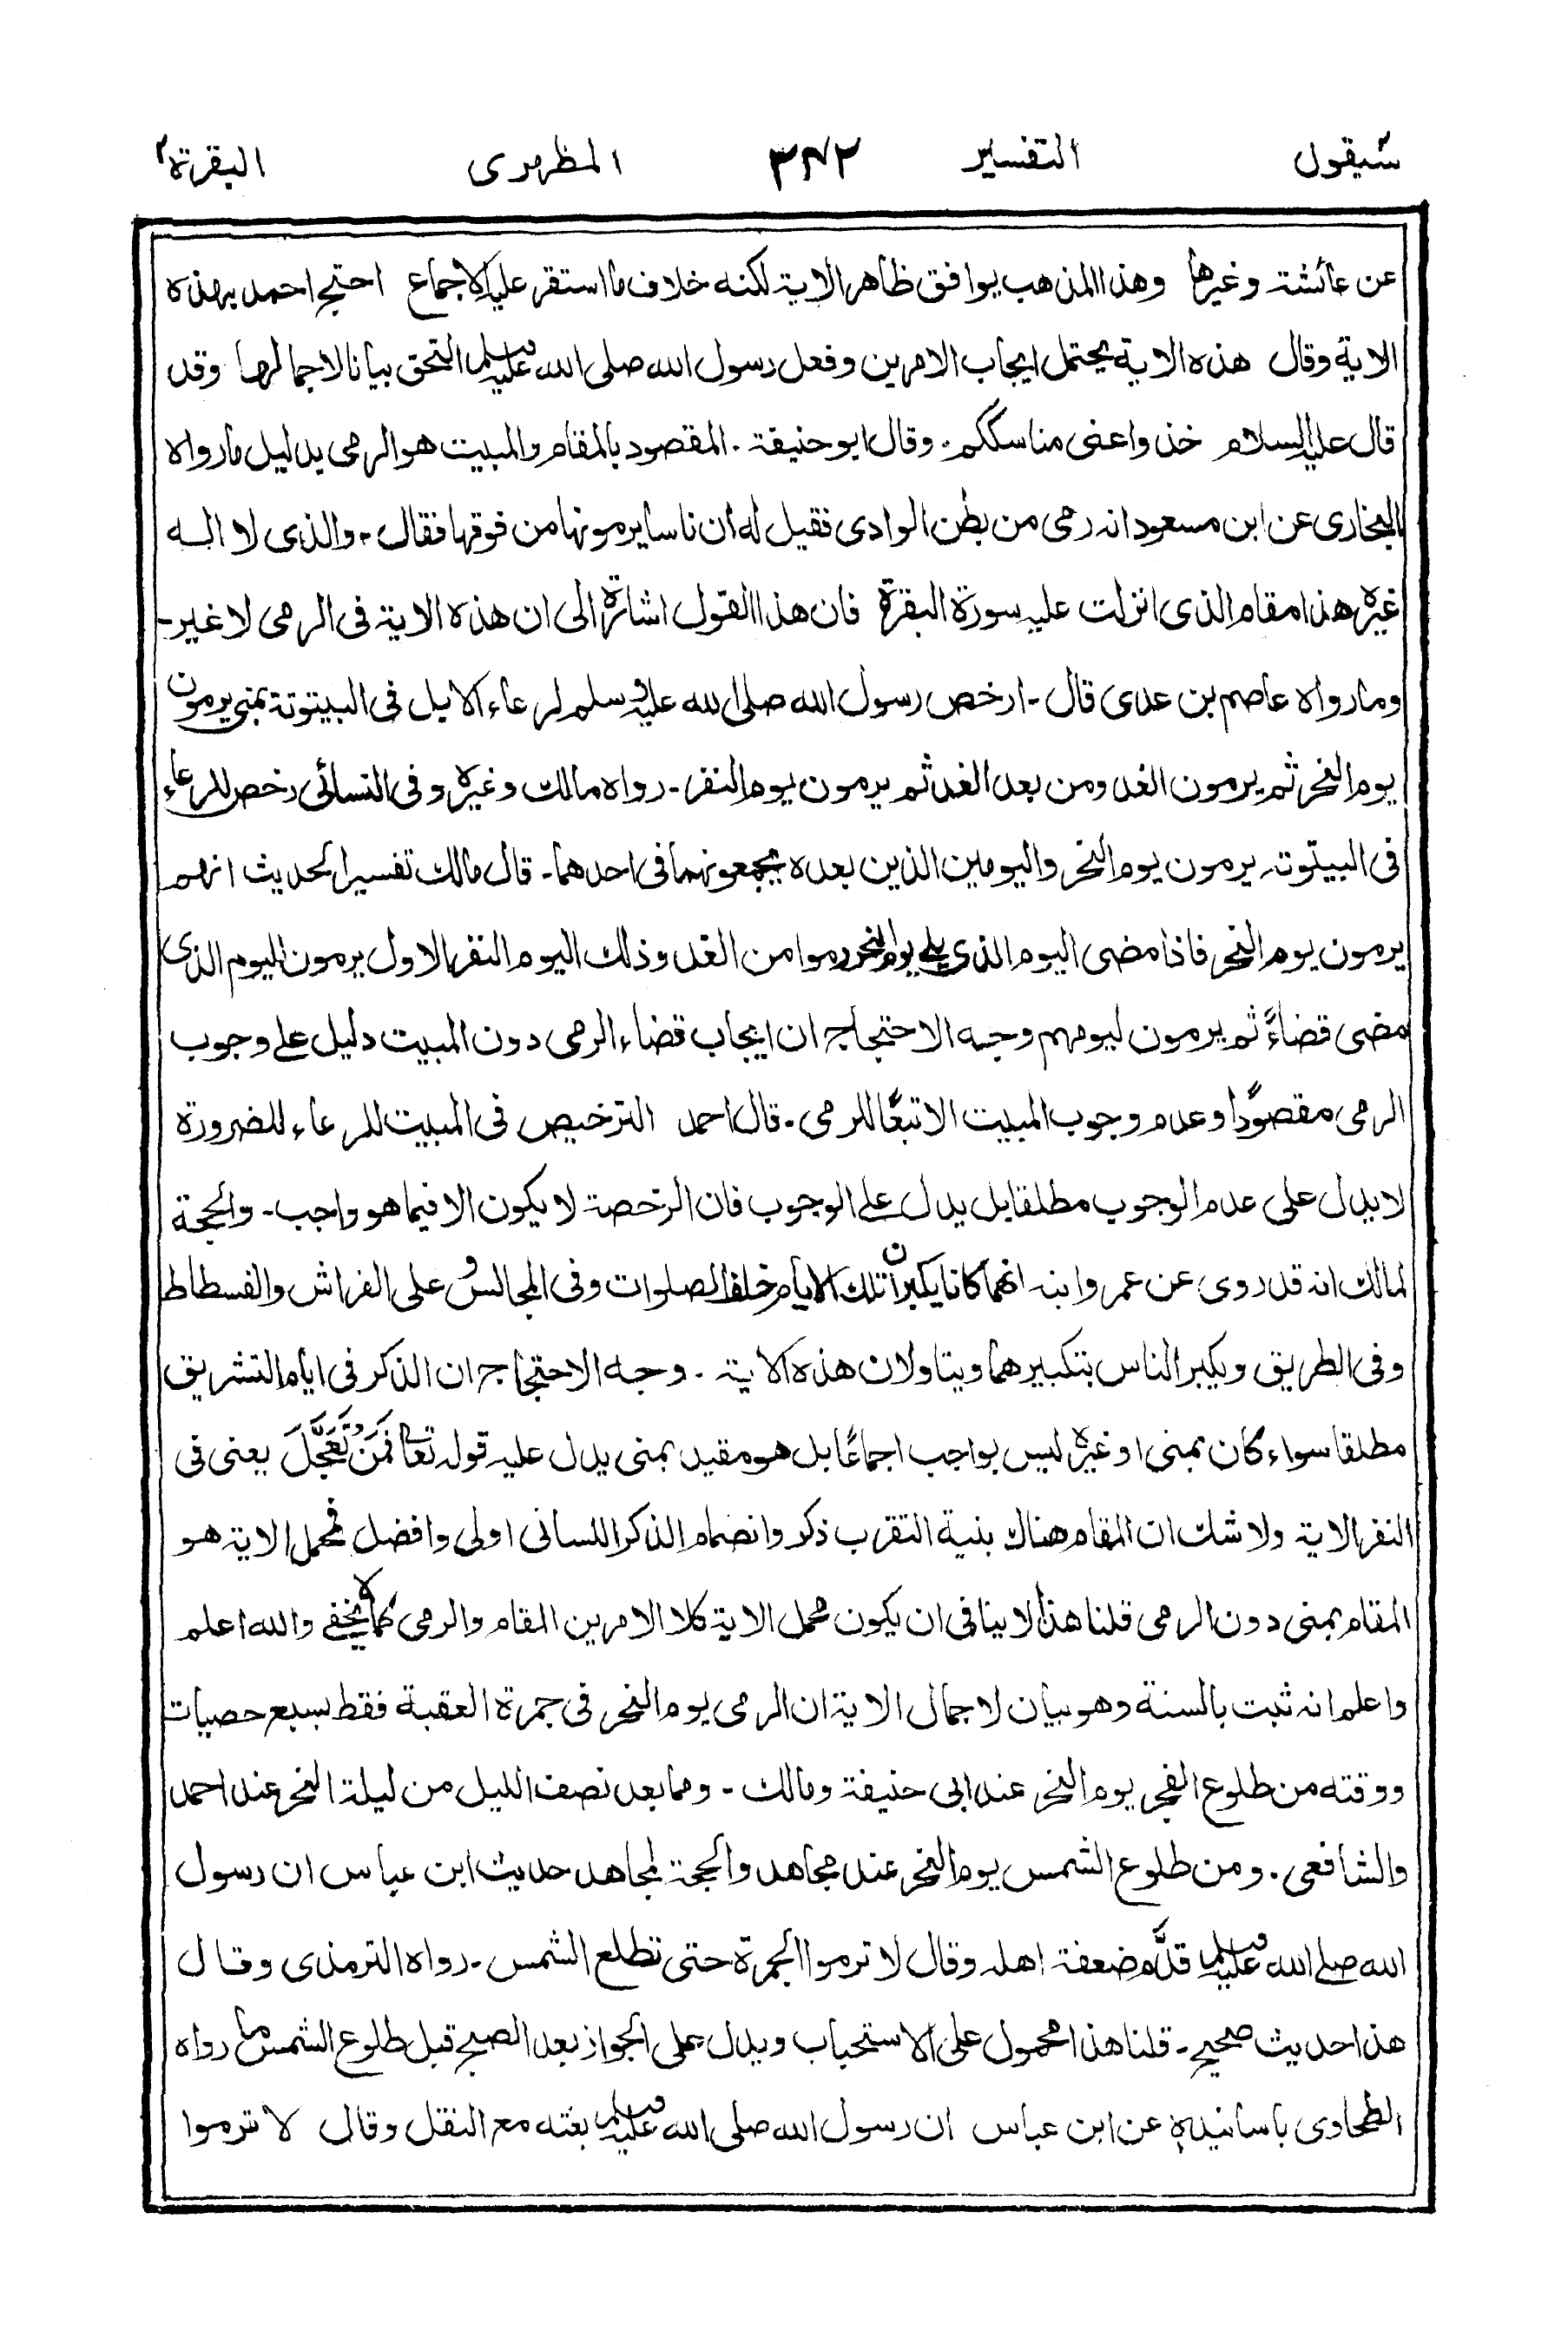 سيقول التفسير ٢٤٢ المظهرى البقرة ٢
عن عائشة وغيرها وهذا المذهب يوافق ظاهر الاية لكنه خلاف ما استقر عليه الاجماع احتج احمد بهذه
الاية وقال هذه الاية يحتمل ايجاب الامرين وفعل رسول الله صلى الله عليه وسلم التحق بيانا لاجمالها وقد
قال عليه السلام خذوا عنى مناسككم. وقال ابو حنيفة. المقصود بالمقام والمبيت هو الرمى بدليل ما رواه
البخارى عن ابن مسعود انه رمى من بطن الوادى فقيل له ان ناسا يرمونها من فوقها فقال- والذى لا اله
غيره هذا مقام الذى انزلت عليه سورة البقرة فان هذا القول اشارة الى ان هذه الاية فى الرمى لا غير-
وما رواه عاصم بن عدى قال- ارخص رسول الله صلى الله عليه وسلم لرعاء الابل فى البيتوتة بمنى يرمون
يوم النحر ثم يرمون الغد ومن بعد الغد ثم يرمون يوم النفر- رواه مالك وغيره وفى النسائى رخص للرعاء
فى البيتوته يرمون يوم النحر واليومين الذين بعده يجمعونهما فى احدهما- قال مالك تفسير الحديث انهم
يرمون يوم النحر فاذا مضى اليوم الذى يلى يوم النحر رموا من الغد وذلك اليوم النفر الاول يرمون اليوم الذى
مضى قضاءً ثم يرمون ليومهم وجه الاحتجاج ان ايجاب قضاء الرمى دون المبيت دليل على وجوب
الرمى مقصودًا وعدم وجوب المبيت الا تبعًا للرمى- قال احمد الترخيص فى المبيت للرعاء للضرورة
لا يدل على عدم الوجوب مطلقا بل يدل على الوجوب فان الرخصة لا يكون الا فيما هو واجب- والحجة
لمالك انه قد روى عن عمر وابنه انهما كانا يكبران تلك الايام خلف الصلوات وفى المجالس و على الفراش والفسطاط
وفى الطريق ويكبر الناس بتكبيرهما ويتاولان هذه الاية. وجه الاحتجاج ان الذكر فى ايام التشريق
مطلقا سواء كان بمنى او غيره ليس بواجب اجماعًا بل هو مقيد بمنى يدل عليه قوله تعالى فَمَنْ تَعَجَّلَ يعنى فى
النفر الاية ولا شك ان المقام هناك بنية التقرب ذكر وانضمام الذكر اللسانى اولى وافضل فمحمل الاية هو
المقام بمنى دون الرمى قلنا هذا لا ينافى ان يكون محمل الاية كلا الامرين المقام والرمى كما لا يخفى والله اعلم
واعلم انه ثبت بالسنة وهو بيان لاجمال الاية ان الرمى يوم النحر فى جمرة العقبة فقط بسبع حصيات
ووقته من طلوع الفجر يوم النحر عند ابى حنيفة ومالك- ومما بعد نصف الليل من ليلة النحر عند احمد
والشافعى. ومن طلوع الشمس يوم النحر عند مجاهد والحجة لمجاهد حديث ابن عباس ان رسول
الله صلى الله عليه وسلم قدَّم ضعفة اهله وقال لا ترموا الجمرة حتى تطلع الشمس- رواه الترمذى وقال
هذا حديث صحيح- قلنا هذا محمول على الاستحباب ويدل على الجواز بعد الصبح قبل طلوع الشمس ما رواه
الطحاوى باسانيده عن ابن عباس ان رسول الله صلى الله عليه وسلم بعثه مع الثقل وقال لا ترموا